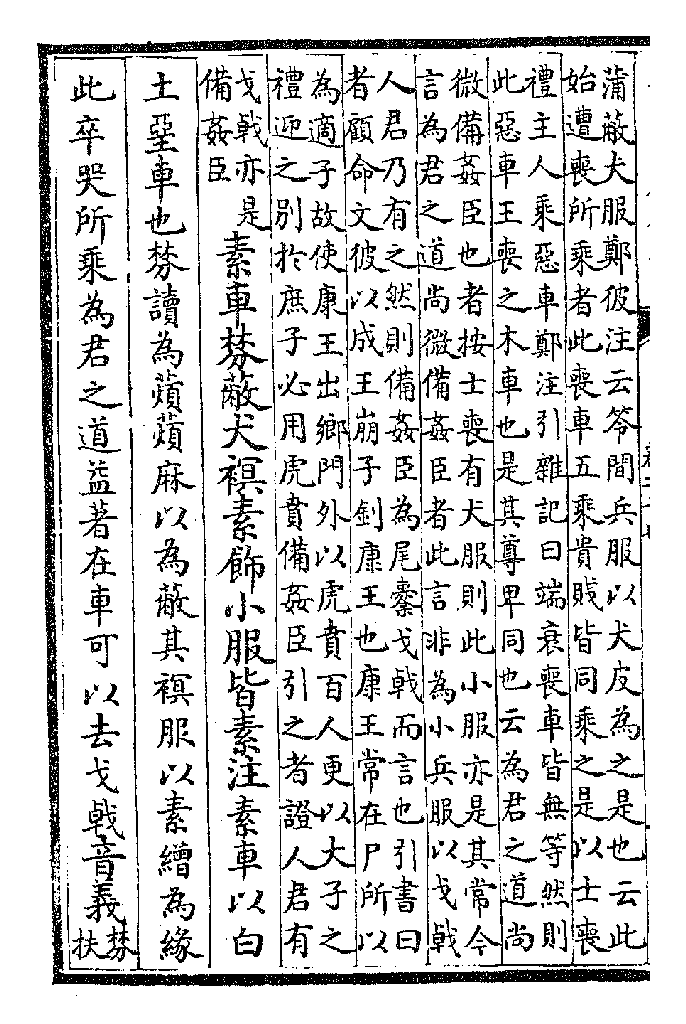 蒲蔽犬服鄭彼注云笭間兵服以犬皮為之是也云此
始遭喪所乘者此喪車五乘貴賤皆同乘之是以士喪
禮主人乘惡車鄭注引雜記曰端衰喪車皆無等然則
此惡車王喪之木車也是其尊卑同也云為君之道尚
微備姦臣也者按士喪有犬服則此小服亦是其常今
言為君之道尚微備姦臣者此言非為小兵服以戈戟
人君乃有之然則備姦臣為尾櫜戈戟而言也引書曰
者顧命文彼以成王崩子釗康王也康王常在尸所以
為適子故使康王出鄉門外以虎賁百人更以大子之
禮迎之別於庶子必用虎賁備姦臣引之者證人君有
戈戟亦是
備姦臣
素車棼蔽犬𧜀素飾小服皆素注素車以白
土堊車也棼讀為薠薠麻以為蔽其𧜀服以素繒為緣
此卒哭所乘為君之道益著在車可以去戈戟音義
棼
扶